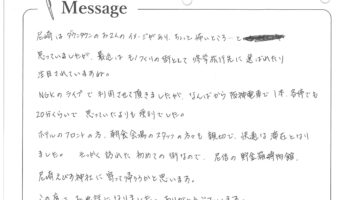 Message
尼崎はダウンタウンのお二人のイメージがあり、ちょっと怖いところ…と
思っていましたが、最近は モノづくりの街として 修学旅行先に選ばれたり
注目されていますね。
NGKのライブで利用させて頂きましたが、なんばから阪神電車で1本、各停でも
20分くらいで 思っていたよりも便利でした。
ホテルのフロントの方、朝食会場のスタッフの方々も親切で、快適な滞在となり
ました。 せっかく訪れた初めての街なので、尼信の貯金箱博物館、
尼崎えびす神社に寄って帰ろうかと思います。
この度は お世話になりました。ありがとうございます。